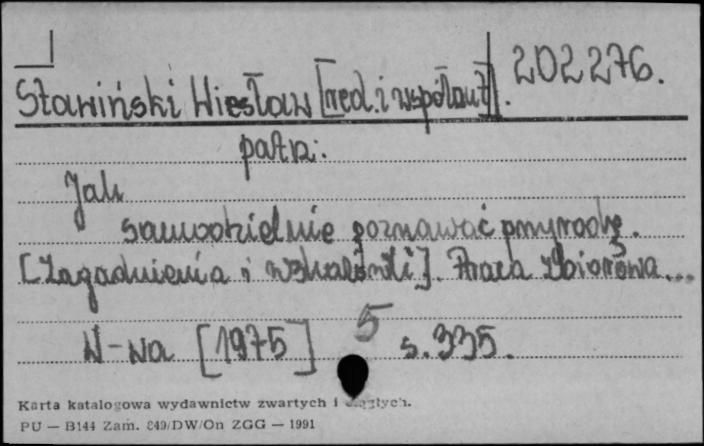 202276.
Stawiński Wiesław [red. i współaut].
patrz:
Jak
samodzielnie poznawać przyrodę.
[Zagadnienia i wskazówki]. Praca zbiorowa...
W-wa [1975] 5 s. 335.
Karta katalogowa wydawnictw zwartych i ciągłych.
PU — B144 Zam. 849/DW/On ZGG — 1991